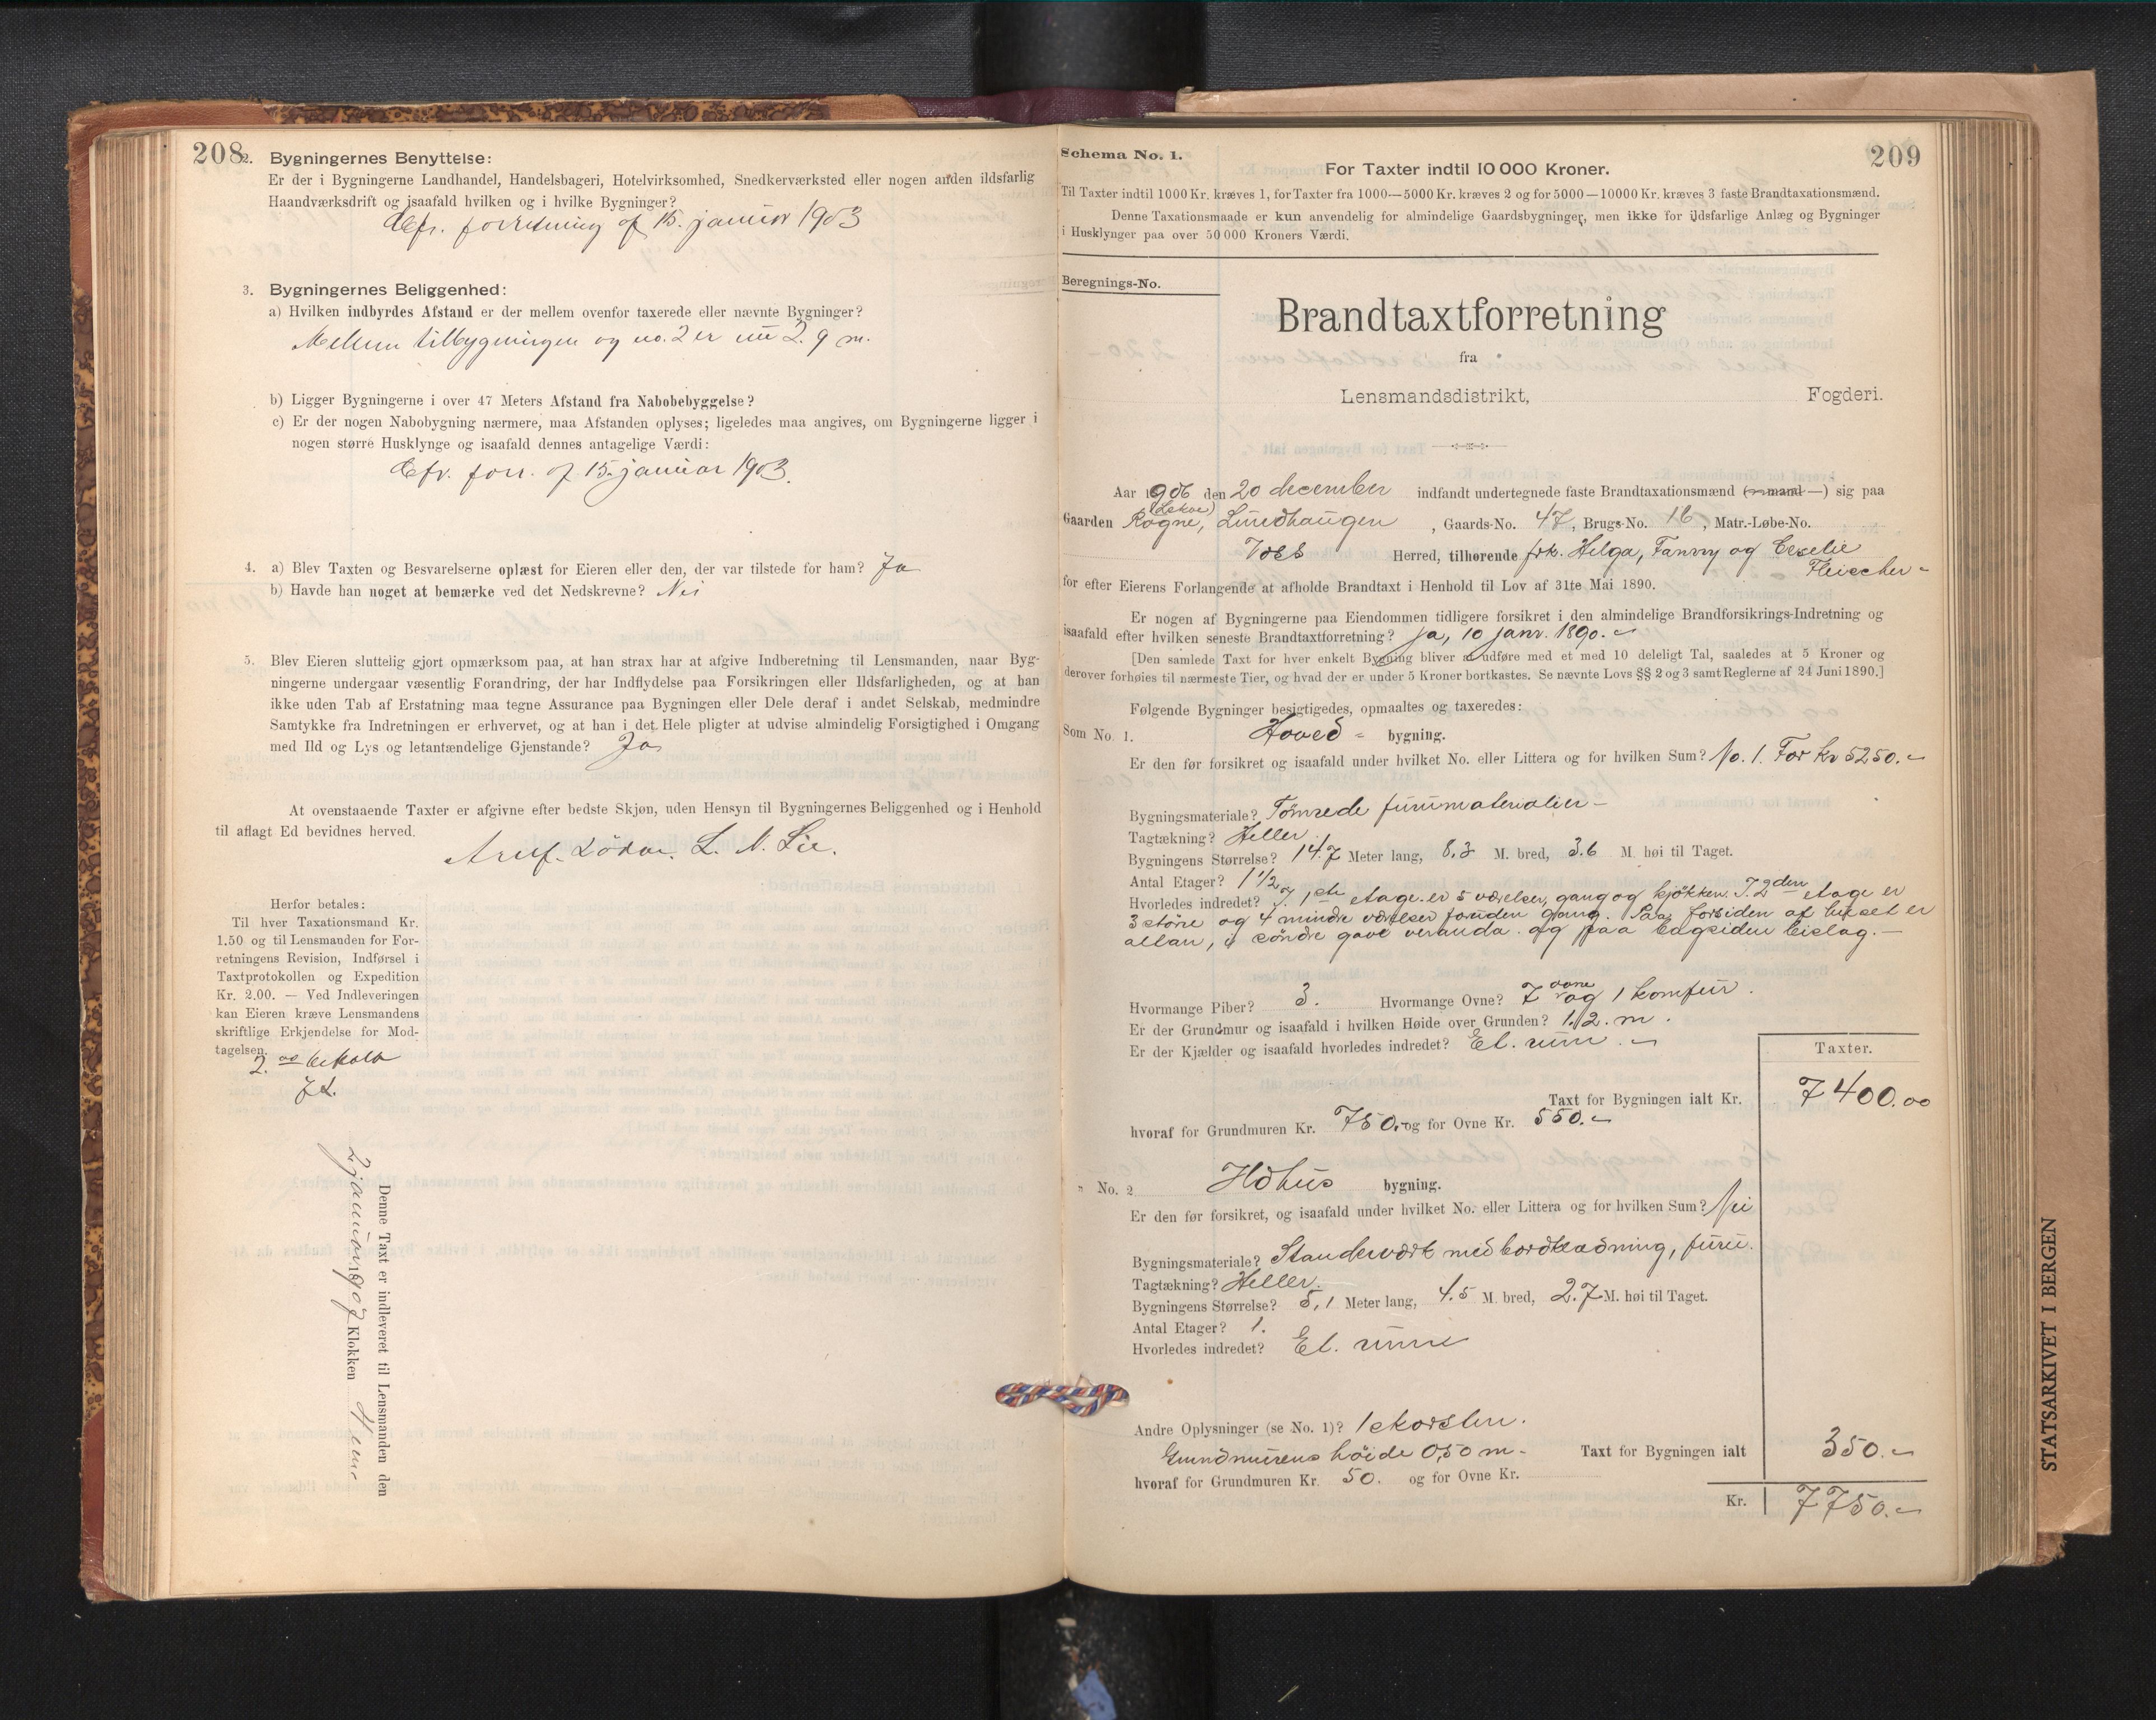 208
2. Bygningernes Benyttelse:
Er der i Bygningerne Landhandel, Handelsbageri, Hotelvirksomhed, Snedkerværksted eller nogen anden ildsfarlig
Haandværksdrift og isaafald hvilken og i hvilke Bygninger?
Cfr. forretning af 15. januar 1903
3. Bygningernes Beliggenhed:
a) Hvilken indbyrdes Afstand er der mellem ovenfor taxerede eller nævnte Bygninger?
Mellem tilbygningen og no. 2 er nu 2.9 m.
b) Ligger Bygningerne i over 47 Meters Afstand fra Nabobebyggelse?
c) Er der nogen Nabobygning nærmere, maa Afstanden oplyses; ligeledes maa angives, om Bygningerne ligger i
nogen større Husklynge og isaafald dennes antagelige Værdi:
Cfr. forr. af 15. januar 1903.
4. a) Blev Taxten og Besvarelserne oplæst for Eieren eller den, der var tilstede for ham? Ja
b) Havde han noget at bemærke ved det Nedskrevne? Nei
5. Blev Eieren sluttelig gjort opmærksom paa, at han strax har at afgive Indberetning til Lensmanden, naar Byg-
ningerne undergaar væsentlig Forandring, der har Indflydelse paa Forsikringen eller Ildsfarligheden, og at han
ikke uden Tab af Erstatning maa tegne Assurance paa Bygningen eller Dele deraf i andet Selskab, medmindre
Samtykke fra Indretningen er erhvervet, og at han i det Hele pligter at udvise almindelig Forsigtighed i Omgang
med Ild og Lys og letantændelige Gjenstande? Ja
At ovenstaaende Taxter er afgivne efter bedste Skjøn, uden Hensyn til Bygningernes Beliggenhed og i Henhold
til aflagt Ed bevidnes herved.
L. N. Lie.
Herfor betales:
Til hver Taxationsmand Kr.
1.50 og til Lensmanden for For-
retningens Revision, Indførsel i
Taxtprotokollen og Expedition
Kr. 2.00. — Ved Indleveringen
kan Eieren kræve Lensmandens
skriftlige Erkjendelse for Mod-
tagelsen.
2.00 betalt
Denne Taxt er indleveret til Lensmanden den
2 januar 1907 Klokken
Schema No. 1.
209
For Taxter indtil 10 000 Kroner.
Til Taxter indtil 1000 Kr. kræves 1, for Taxter fra 1000—5000 Kr. kræves 2 og for 5000—10000 Kr. kræves 3 faste Brandtaxationsmænd.
Denne Taxationsmaade er kun anvendelig for almindelige Gaardsbygninger, men ikke for ildsfarlige Anlæg og Bygninger
i Husklynger paa over 50 000 Kroners Værdi.
Beregnings-No.
Brandtaxtforretning
fra
Lensmandsdistrikt, Fogderi.
Aar 1906 den 20 december indfandt undertegnede faste Brandtaxationsmænd (—mand —) sig paa
Gaarden Rogne, (Lekve) Lundhaugen, Gaards-No. 47, Brugs-No. 16, Matr.-Løbe-No.
Voss Herred, tilhørende frk. Helga, Fanny og Cecelie
Fleischer
for efter Eierens Forlangende at afholde Brandtaxt i Henhold til Lov af 31te Mai 1890.
Er nogen af Bygningerne paa Eiendommen tidligere forsikret i den almindelige Brandforsikrings-Indretning og
isaafald efter hvilken seneste Brandtaxtforretning? Ja, 10 janr. 1890.
[Den samlede Taxt for hver enkelt Bygning bliver at udføre med et med 10 deleligt Tal, saaledes at 5 Kroner og
derover forhøies til nærmeste Tier, og hvad der er under 5 Kroner bortkastes. Se nævnte Lovs §§ 2 og 3 samt Reglerne af 24 Juni 1890.]
Følgende Bygninger besigtigedes, opmaaltes og taxeredes:
Som No. 1. Hoved - bygning.
Er den før forsikret og isaafald under hvilket No. eller Littera og for hvilken Sum? No. 1. For kr 5250.
Bygningsmateriale? Tømrede furumaterialier
Tagtækning? Heller.
Bygningens Størrelse? 14.7 Meter lang, 8.3 M. bred, 3.6 M. høi til Taget.
Antal Etager? 1 1/2
Hvorledes indredet? I 1ste etage er 5 værelser, gang og kjøkken. I 2den etage er
3 større og 4 mindre værelser foruden gang. Paa forsiden af huset er
altan, i søndre gavl veranda og paa bagsiden bislag.
Hvormange Piber? 3. Hvormange Ovne? 7 ovne og 1 komfur.
Er der Grundmur og isaafald i hvilken Høide over Grunden? 1.2. m.
Er der Kjælder og isaafald hvorledes indredet? Et rum.
Taxter.
Taxt for Bygningen ialt Kr. 7400.00
hvoraf for Grundmuren Kr. 750. og for Ovne Kr. 550.
" No. 2 Ildhus bygning.
Er den før forsikret, og isaafald under hvilket No. eller Littera og for hvilken Sum? Nei
Bygningsmateriale? Standerverk med bordklædning, furu.
Tagtækning? Heller.
Bygningens Størrelse? 5,1 Meter lang, 4.5 M. bred, 2.7 M. høi til Taget.
Antal Etager? 1.
Hvorledes indredet? Et rum
Andre Oplysninger (se No. 1)? 1 skorsten.
Grundmurens høide 0,50 m. Taxt for Bygningen ialt 350.
hvoraf for Grundmuren Kr. 50. og for Ovne Kr.
Kr. 7750.
STATSARKIVET I BERGEN